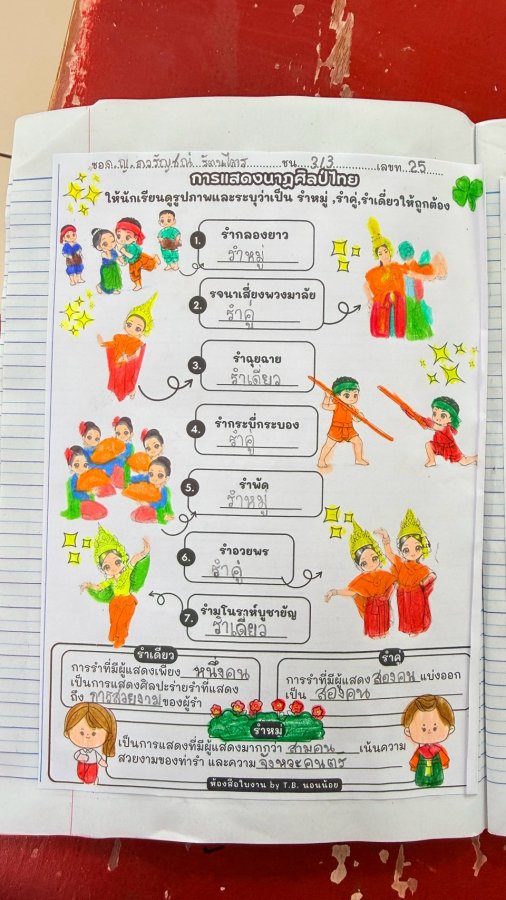 ชื่อ ด.ญ. ชั้น 3/3 เลขที่ 25
การแสดงนาฏศิลป์ไทย
ให้นักเรียนดูรูปภาพและระบุว่าเป็น รำหมู่ ,รำคู่,รำเดี่ยวให้ถูกต้อง
1. รำกลองยาว
รำหมู่
2. รจนาเสี่ยงพวงมาลัย
รำคู่
3. รำฉุยฉาย
รำเดี่ยว
4. รำกระบี่กระบอง
รำคู่
5. รำพัด
รำหมู่
6. รำอวยพร
รำคู่
7. รำมโนราห์บูชายัญ
รำเดี่ยว
รำเดี่ยว
การรำที่มีผู้แสดงเพียง หนึ่งคน
เป็นการแสดงศิลปะร่ายรำที่แสดง
ถึง ของผู้รำ
รำคู่
การรำที่มีผู้แสดง สองคน แบ่งออก
เป็น สองคน
รำหมู่
เป็นการแสดงที่มีผู้แสดงมากกว่า สามคน เน้นความ
สวยงามของท่ารำ และความ
ห้องสื่อใบงาน by T.B. นอนน้อย